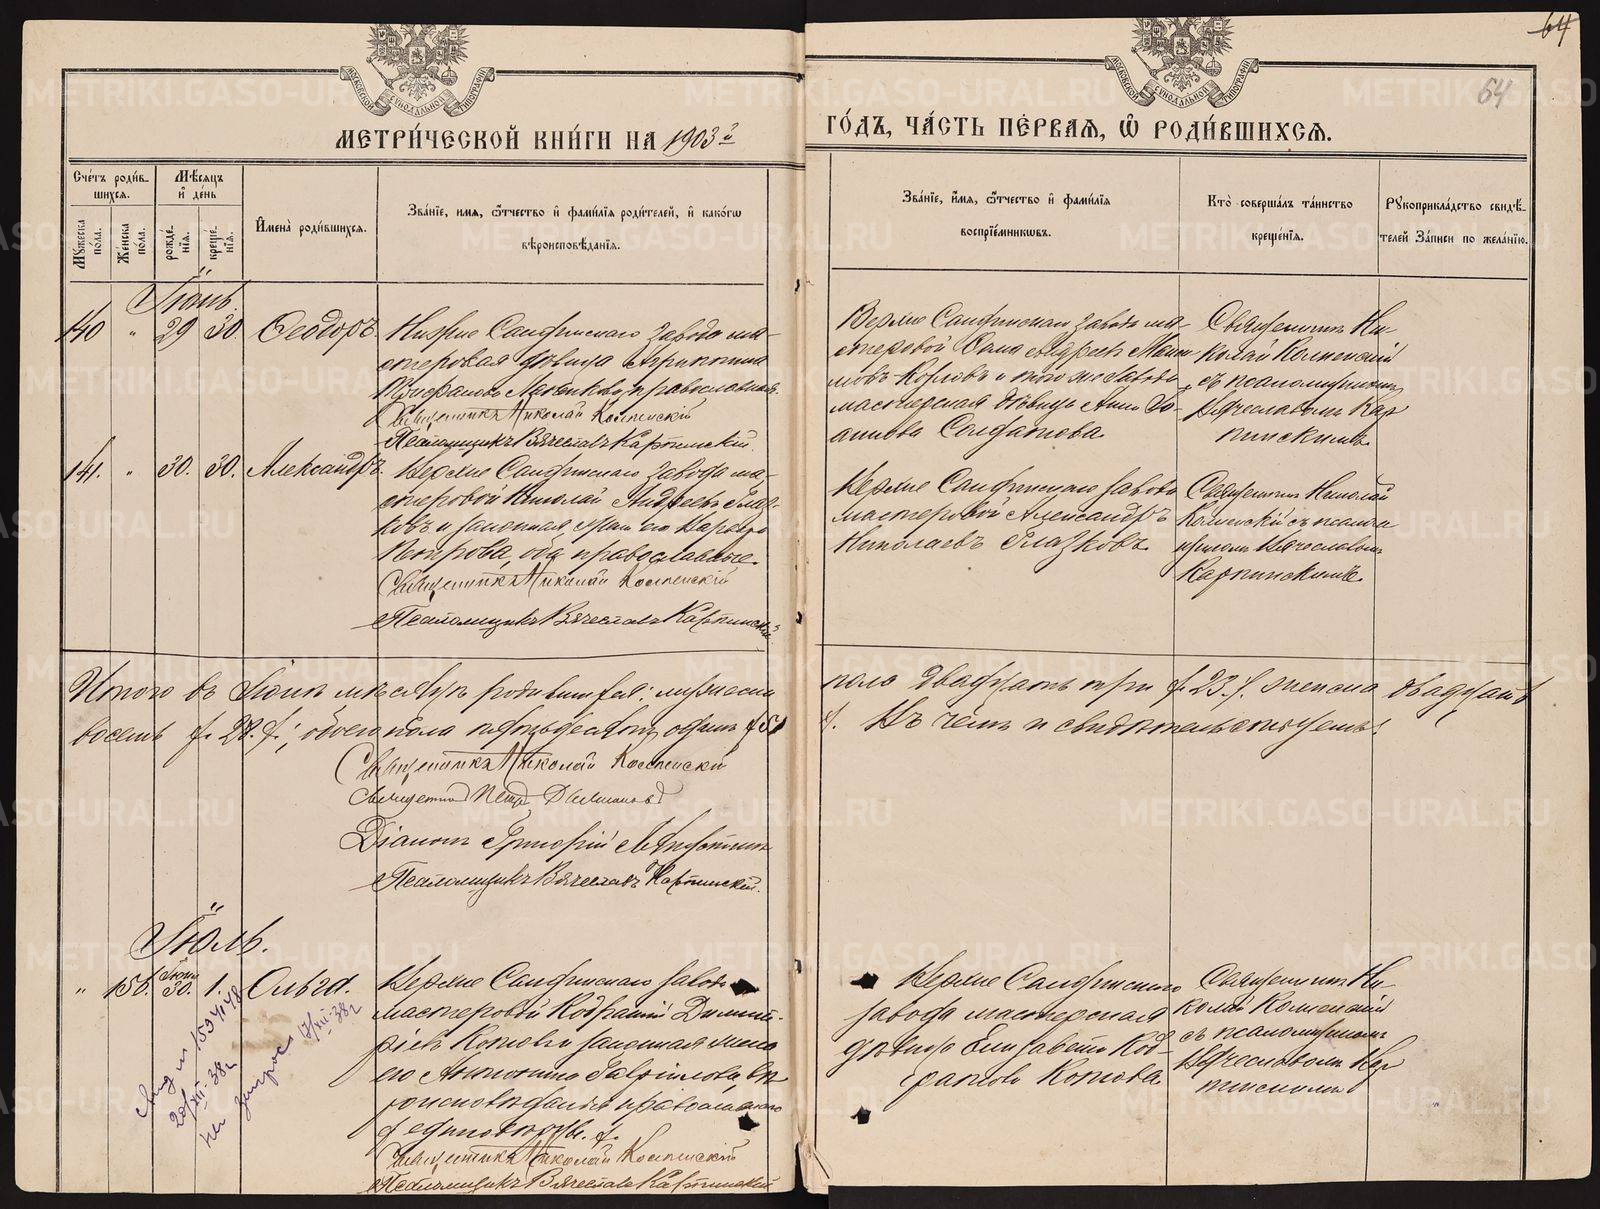 64
64
МЕТРИ́ЧЕСКОЙ КНИ́ГИ НА 1903й
ГО́ДЪ, ЧА́СТЬ ПЕ́РВАЯ, Ѡ РОДИ́ВШИХСЯ.
Сче́тъ роди́вшихся.
Мужеска пола.
Же́нска пола.
Мѣ́сяцъ и де́нь
рожде́нія.
креще́нія.
Имена̀ роди́вшихся.
Зва́ніе, имя, ѻтчество и фами́лія роди́телей, и како́гѡ вѣроисповѣ́данія.
Зва́ніе, имя, ѻтчество и фами́лія воспріе́мникѡвъ.
Кто̀ соверша́лъ та́инство креще́нія.
Рукоприкла́дство свидѣ́телей за́писи по жела́нію.
Іюнь.
140 " 29 30. Ѳеодоръ.
Нижне Салдинскаго завода ма-
стеровая дѣвица Агрипина
православная.
Священникъ Николай Коименскій
Псаломщикъ Вячеславъ Карпинскій.
Верхне Салдинскаго завода ма-
стеровой
Козловъ и того же завода
мастерская дѣвица Анна Іо-
аннова Солдатова.
Священникъ Ни-
колай
съ псаломщикомъ
Вячеславомъ Кар-
пинскимъ.
141. " 30. 30. Александръ.
Верхне Салдинскаго завода ма-
стеровой Николай Андреевъ Глаз-
ковъ и законная жена его Варвара
Петрова, оба православные.
Священникъ Николай
Псаломщикъ Вячеславъ Карпинскій
Верхне Салдинскаго завода
мастеровой Александръ
Николаевъ Глазковъ.
Священникъ Николай
съ псалом-
щикомъ Вячеславомъ
Карпинскимъ.
Итого въ Іюнѣ мѣсяцѣ родившихся: мужеска
пола двадцать три /23/, женска двадцать
восемь /28/, обоего пола пятьдесятъ одинъ /51/.
Въ чемъ и свидѣтельствуемъ:
Священникъ Николай
Священникъ Петръ
Діаконъ Григорій
Псаломщикъ Вячеславъ Карпинскій.
Іюль.
" 156. Іюня 30. 1. Ольга.
Верхне Салдинскаго завода
мастеровой Кодратій Димит-
ріевъ Котовъ и законная жена
его Антонина Гавріилова, вѣ-
роисповѣданія православнаго
/единовѣрцы/.
Священникъ Николай
Псаломщикъ Вячеславъ Карпинскій
Верхне Салдинскаго
завода мастерская
дѣвица Елизавета Код-
ратова Котова.
Священникъ Ни-
колай
съ псаломщикомъ
Вячеславомъ Кар-
пинскимъ
20/XII-38г
на запрос 17/XII-38г
METRIKI.GASO-URAL.RU